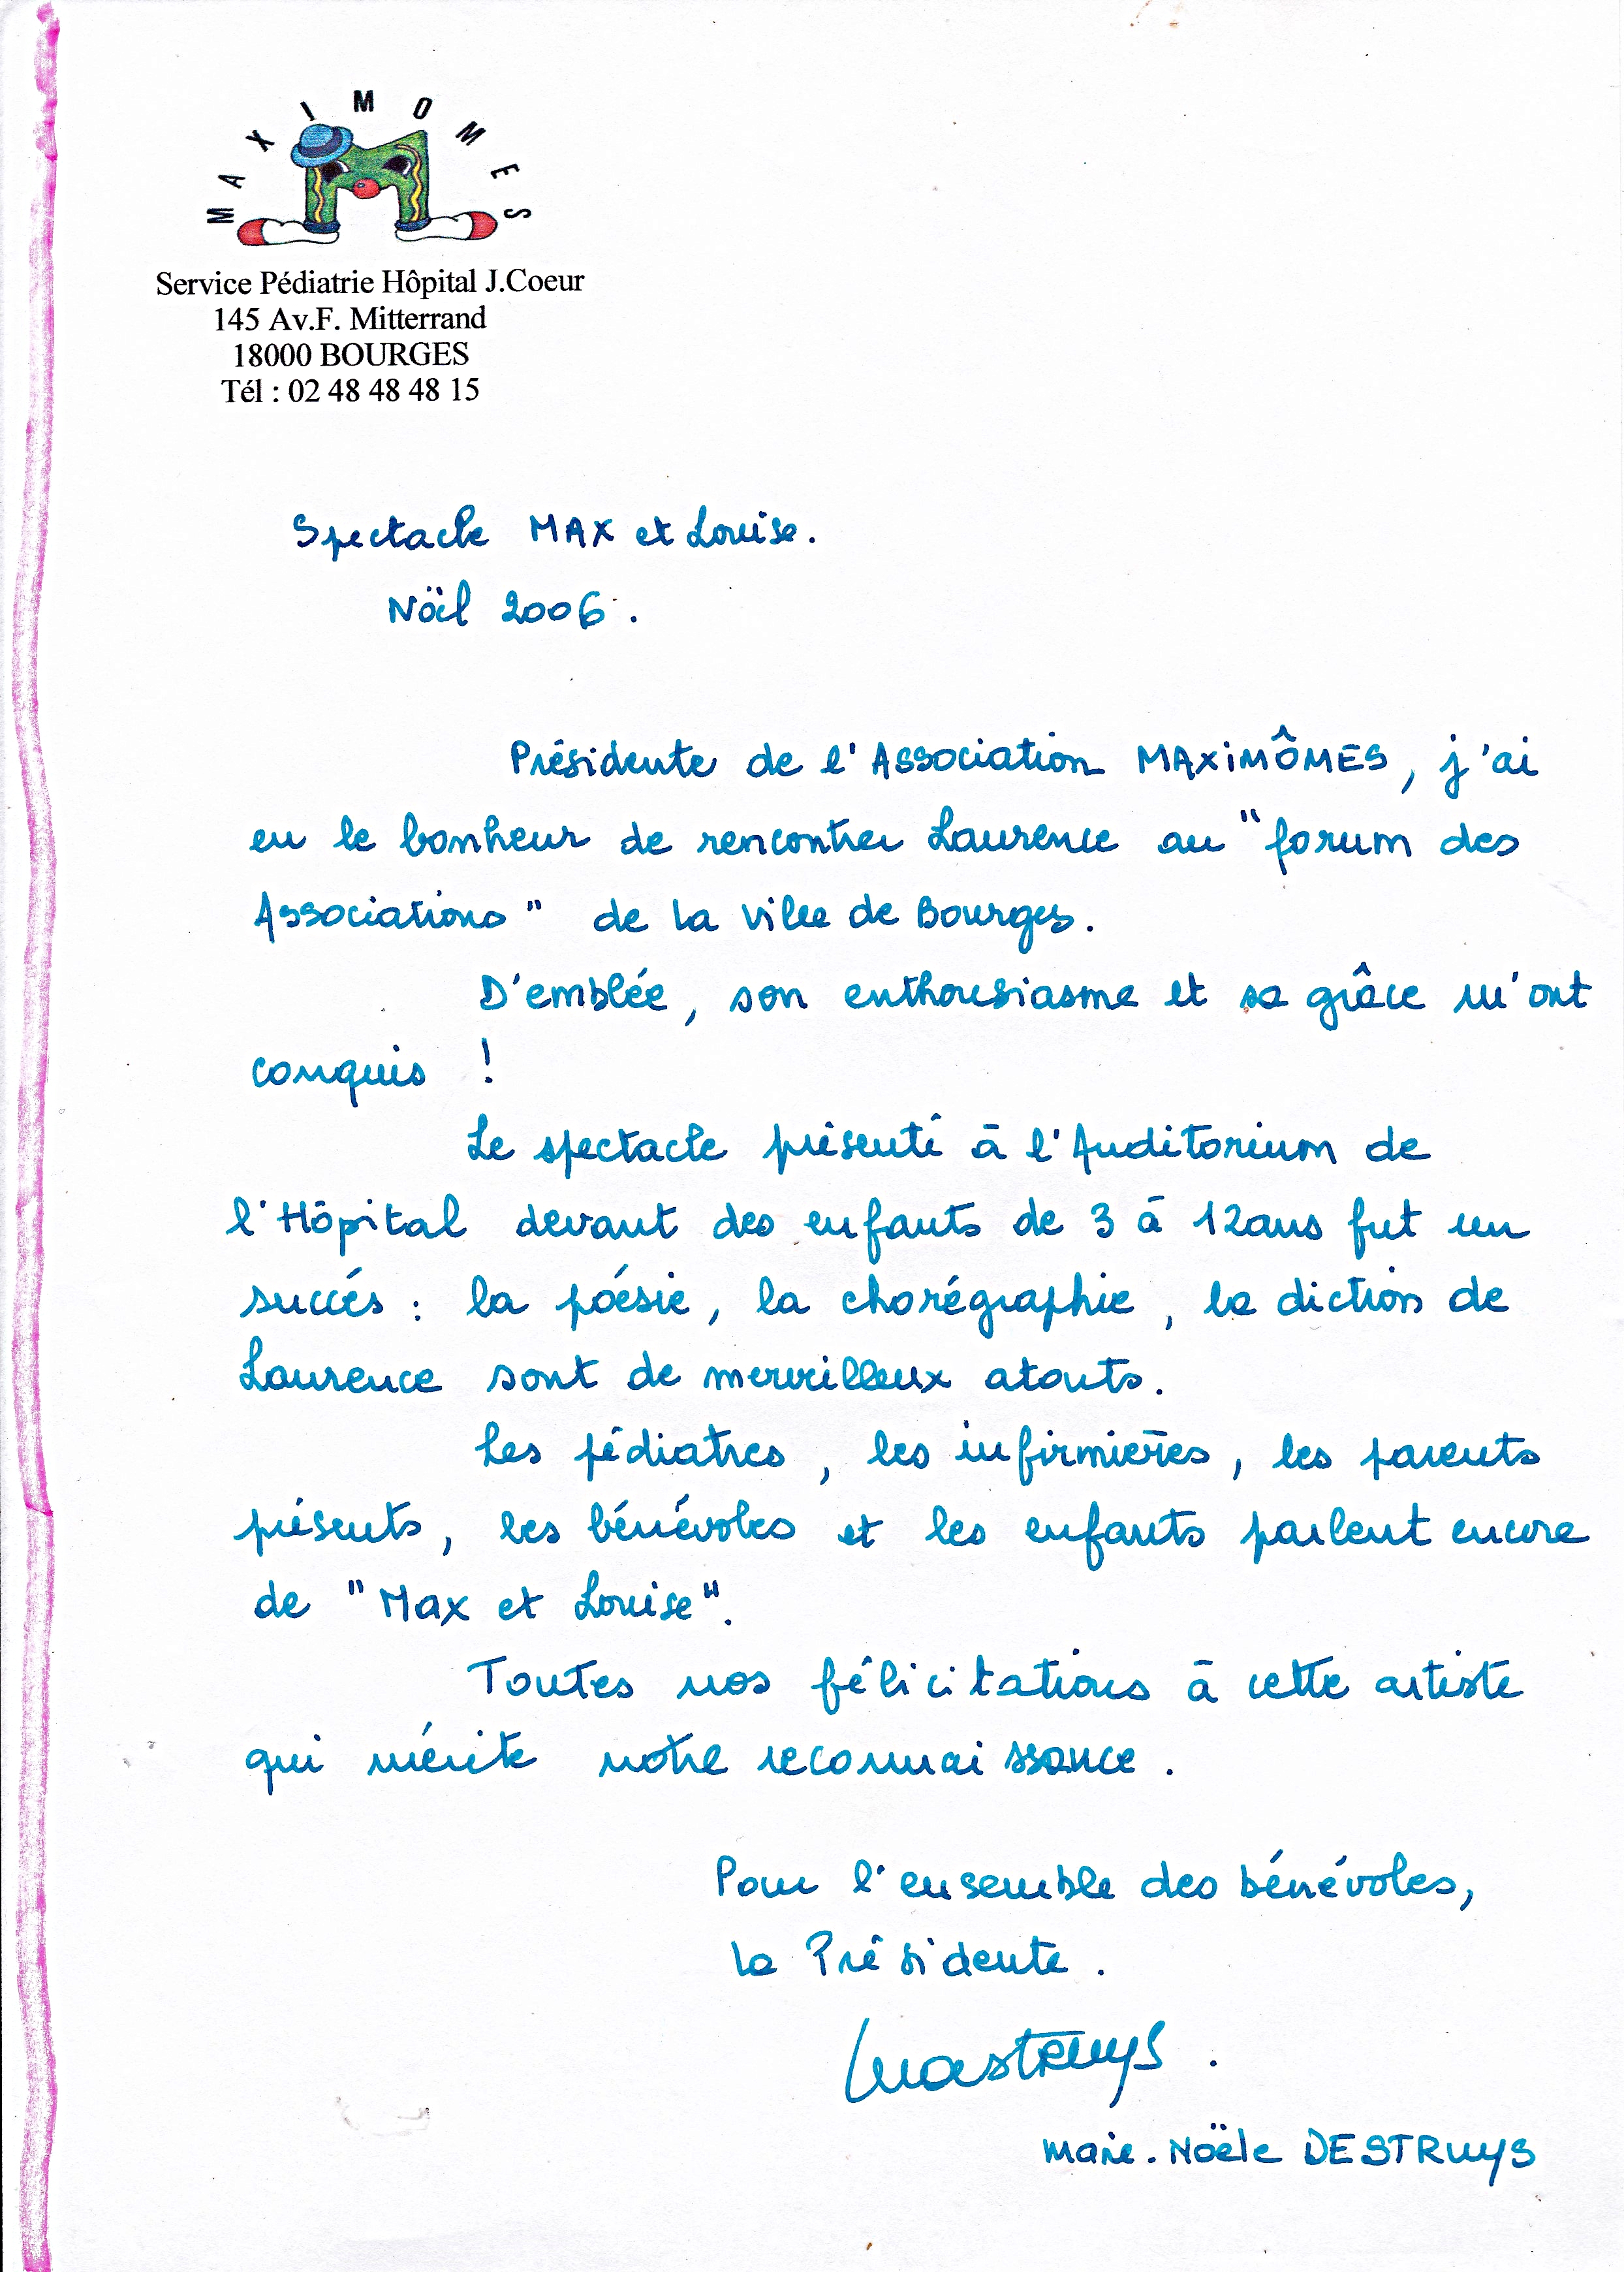 MAXIMOMES
Service Pédiatrie Hôpital J.Coeur
145 Av.F. Mitterrand
18000 BOURGES
Tél : 02 48 48 48 15
Spectacle MAX et Louise.
Nöel 2006.
Présidente de l'Association MAXiMÔMES, j'ai
eu le bonheur de rencontrer Laurence au "forum des
Associations" de la ville de Bourges.
D'emblée, son enthousiasme et sa grâce m'ont
conquis !
Le spectacle présenté à l'Auditorium de
l'Hôpital devant des enfants de 3 à 12ans fut un
succés : la poésie, la chorégraphie, la diction de
Laurence sont de merveilleux atouts.
Les pédiatres, les infirmières, les parents
présents, les bénévoles et les enfants parlent encore
de "Max et Louise".
Toutes nos félicitations à cette artiste
qui mérite notre reconnaissance.
Pour l'ensemble des bénévoles,
la Présidente.
Marie-Noële DESTRUYS